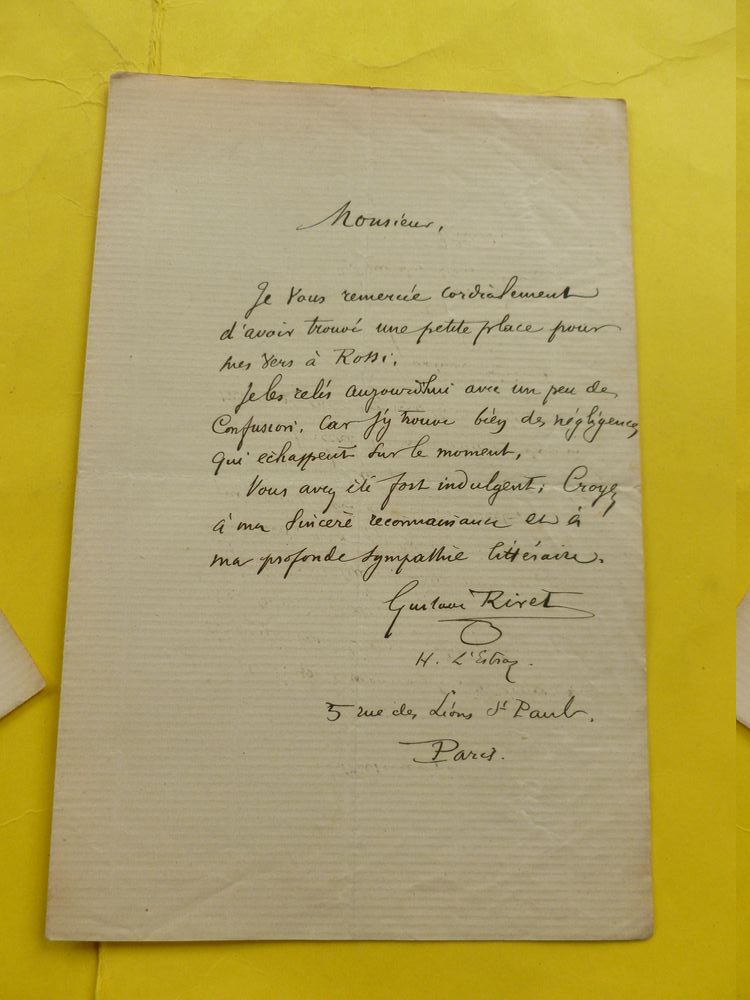 Monsieur,
Je vous remercie cordialement
d'avoir trouvé une petite place pour
mes vers à Rossi.
Je les relis aujourd'hui avec un peu de
Confusion, car j'y trouve bien des négligences
qui echappent sur le moment,
Vous avez été fort indulgent; Croyez
à ma sincère reconnaissance et à
ma profonde sympathie littéraire.
Gustave Rivet
H. L'Estraz.
5 rue des Lions St Paul.
Paris.